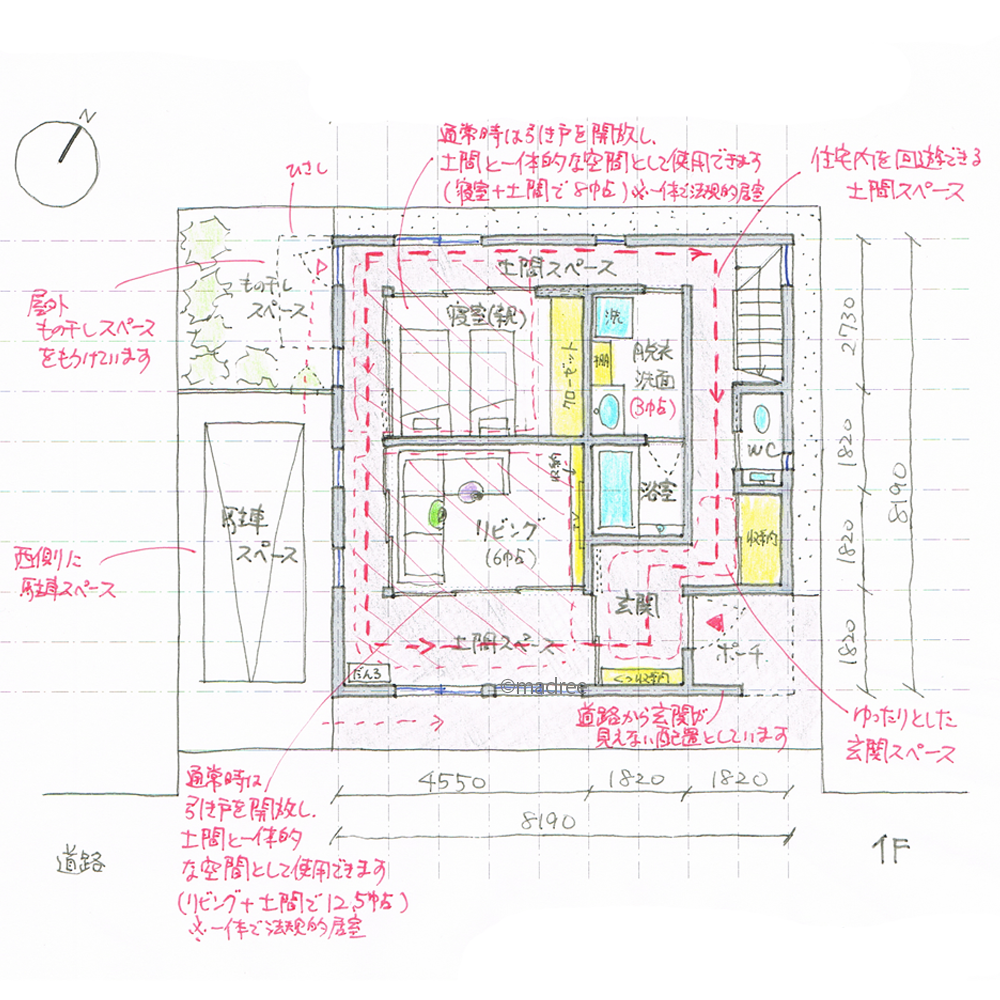 N
ひさし
通常時は引き戸を開放し、
土間と一体的な空間として使用できます
(寝室+土間で8帖)※一体で法規的居室
住宅内を回遊できる
土間スペース
屋外
もの干しスペース
をもうけています
もの干し
スペース
土間スペース
寝室(親)
クローゼット
洗
棚
脱衣
洗面
(3帖)
WC
浴室
収納
リビング
(6帖)
駐車
スペース
西側に
駐車スペース
玄関
ポーチ
土間スペース
だんろ
くつ収納
©madree
道路から玄関が
見えない配置としています
ゆったりとした
玄関スペース
2730
1820
1820
1820
8190
4550
1820
1820
8190
通常時は
引き戸を開放し、
土間と一体的
な空間として使用できます
(リビング+土間で12.5帖)
※一体で法規的居室
道路
1F